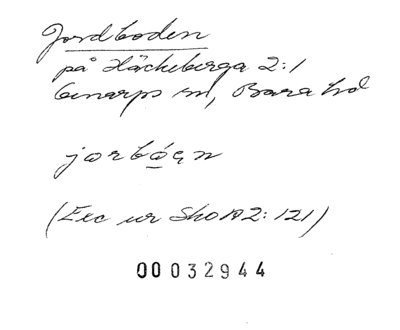 Jordboden
på Häckeberga 2:1
Genarps sn, Bara hd
jorbóen
(Exc ur Sko A2:121)
00032944